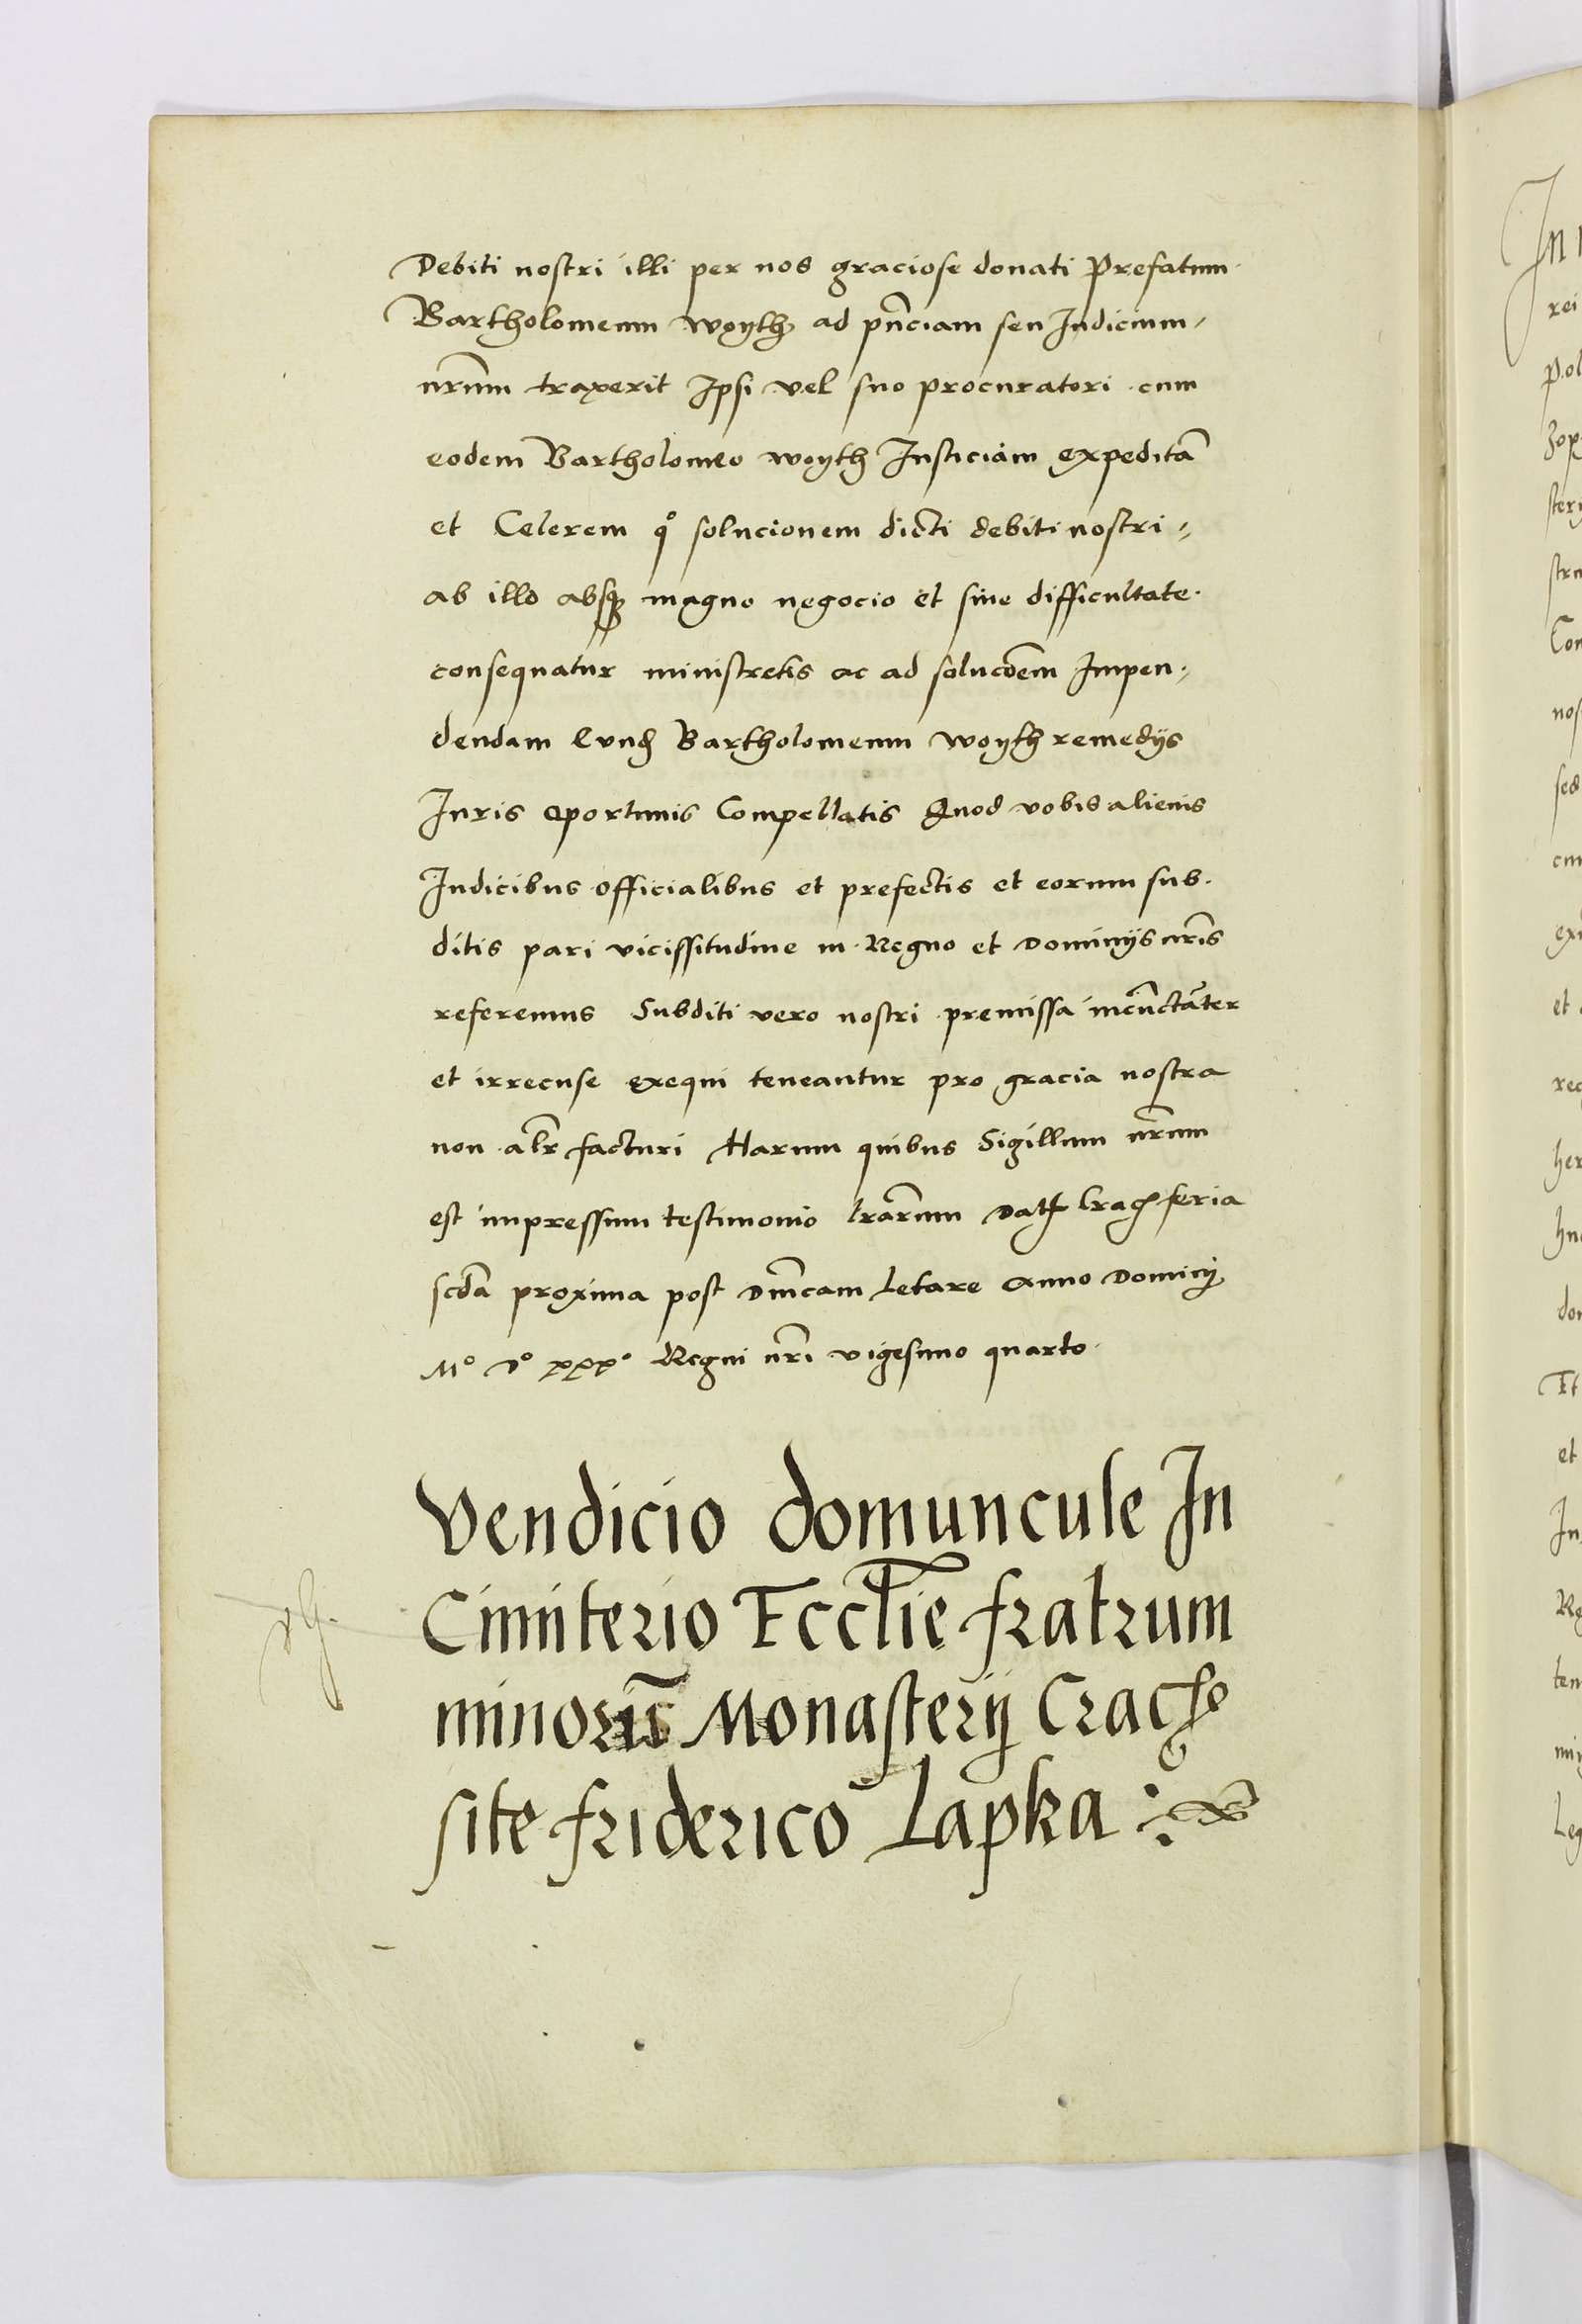 Debiti nostri illi per nos graciose donati Prefatum
Bartholomeum Woyth ad pñciam seu Iudicium
nrum̃ traxerit Ipsi vel suo procuratori cum
eodem Bartholomeo Woyth Iusticiam expeditã
et Celerem qͦ solucionem dicti debiti nostri
ab illo absqꝫ magno negocio et sine difficultate.
consequatur ministretis ac ad solucõem Impen-
dendam Eund Bartholomeum Woyth remedijs
Iuris oportunis Compellatis Quod vobis alienis
Iudicibus officialibus et prefectis et eorum sub-
ditis pari vicissitudine in Regno et Dominijs nrĩs
referemus Subditi vero nostri premissa incũctãter
et irrecuse exequi teneantur pro gracia nostra
non alr̃ facturi Harum quibus Sigillum nrũm
est impressum testimonio lrãrum Dat Crac feria
scđa proxima post Dñicam Letare Anno Dominj
Mº Dº xxxº Regni nrĩ vigesimo quarto.
Vendicio domuncule In
Cimiterio Eccl̃ie fratrum
minorũ Monasterij Crac
site friderico Lapka
In
rei
pol